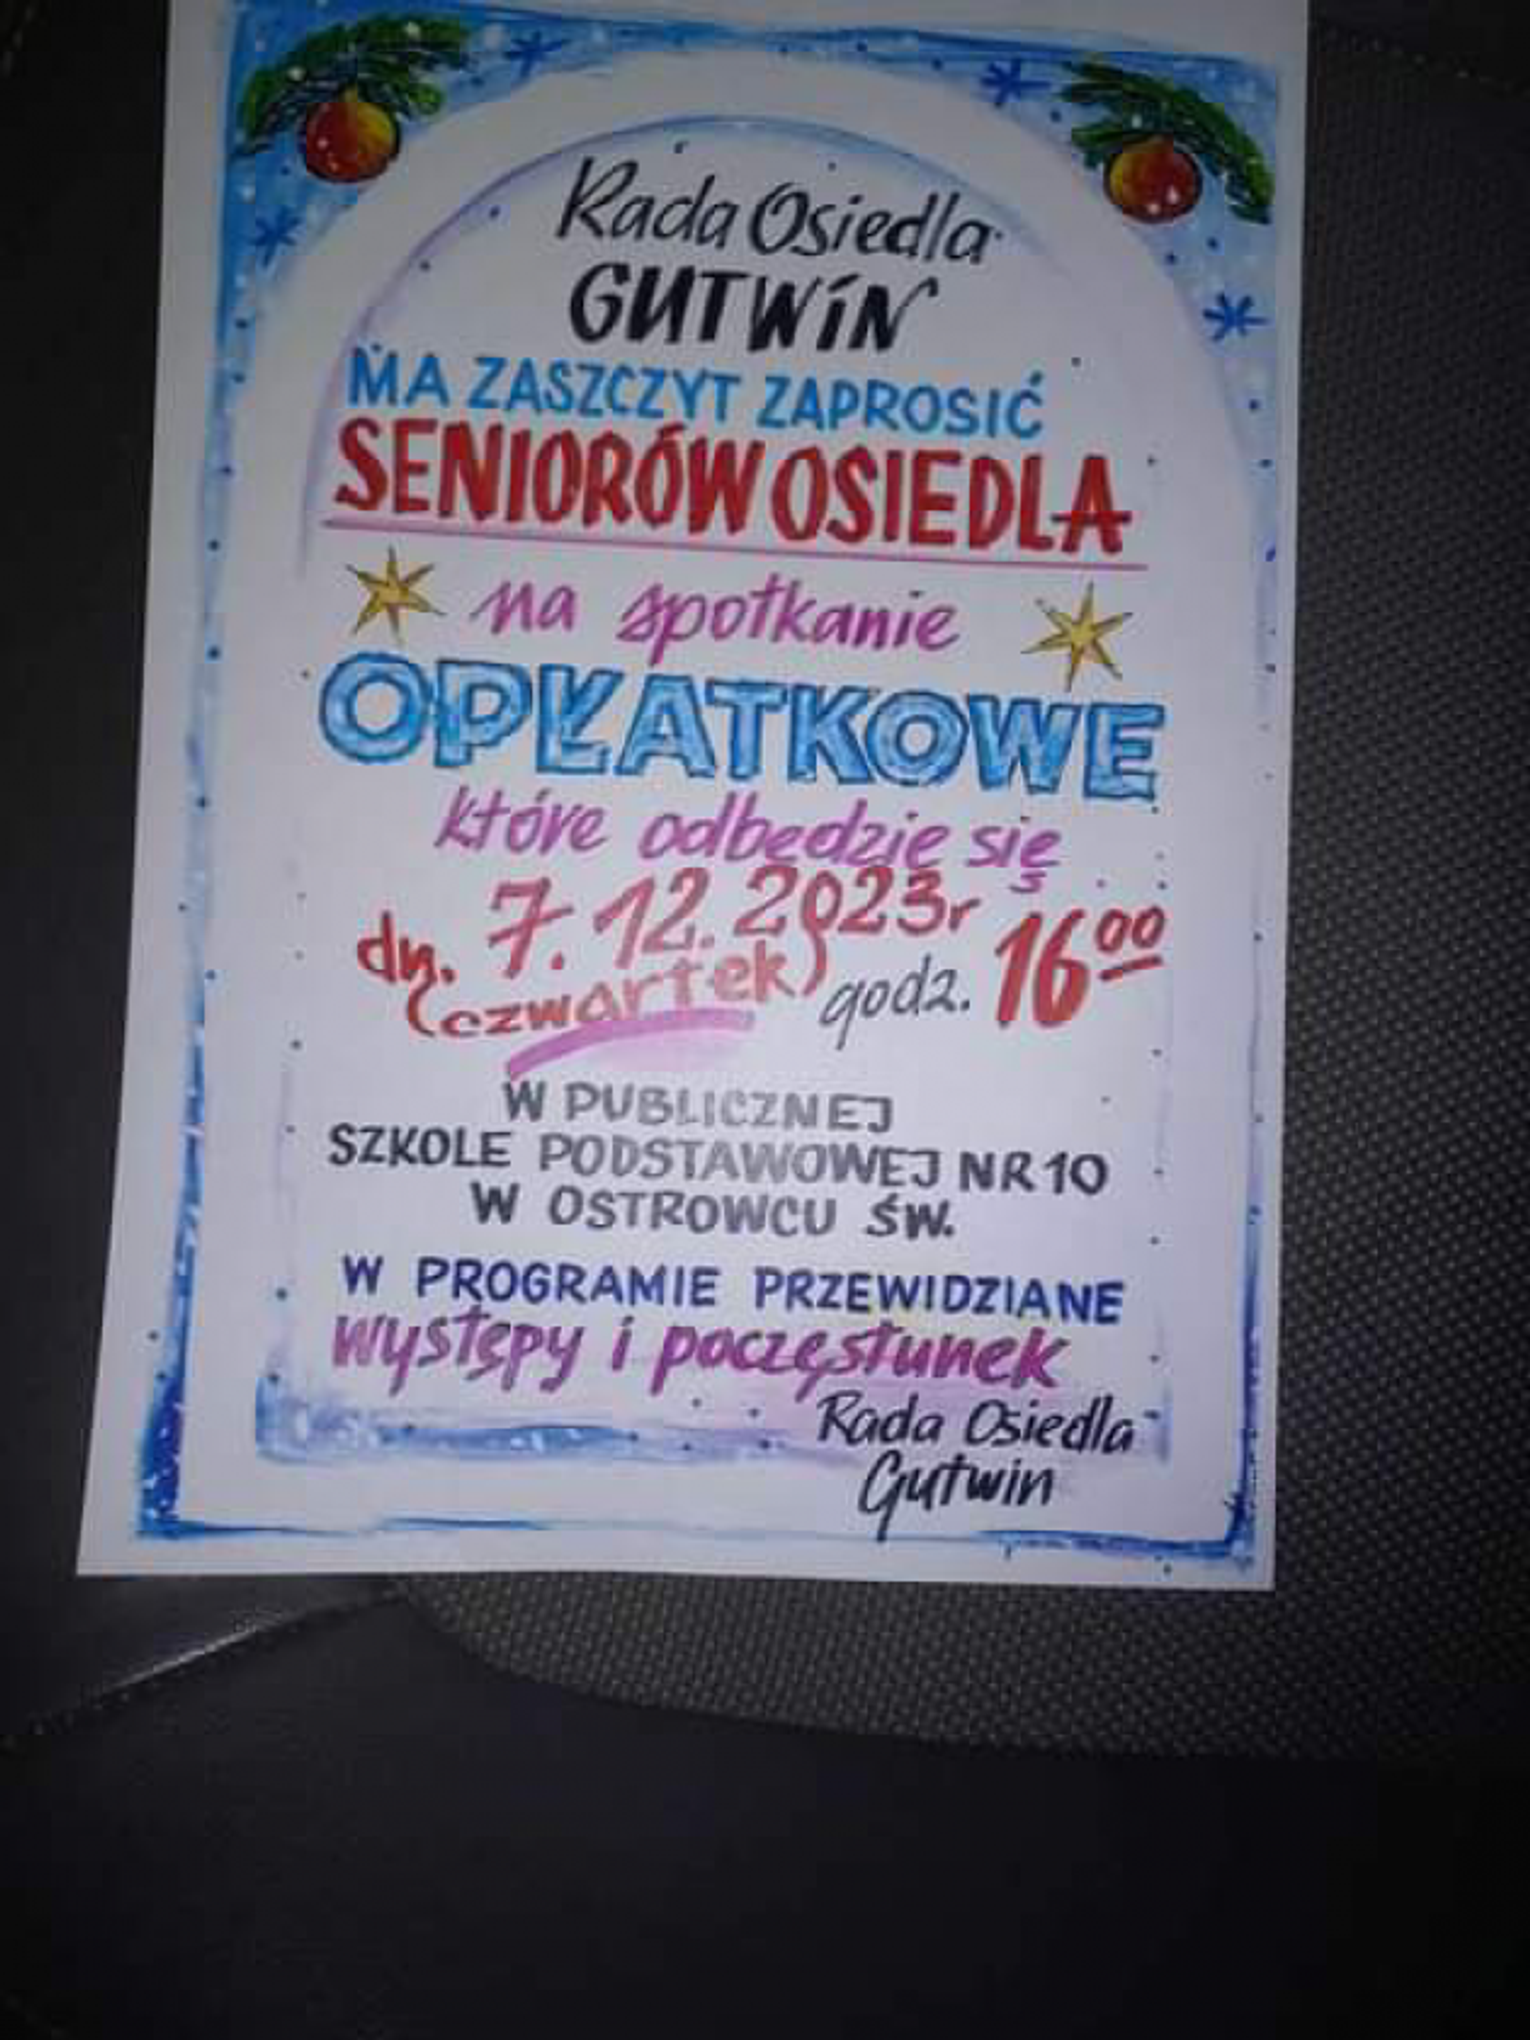 Rada Osiedla
GUTWiN
MA ZASZCZYT ZAPROSIĆ
SENIORÓW OSIEDLA
na spotkanie
OPŁATKOWE
które odbędzie się
dn. 7.12.2023r
(czwartek) godz. 16⁰⁰
W PUBLICZNEJ
SZKOLE PODSTAWOWEJ NR 10
W OSTROWCU ŚW.
W PROGRAMIE PRZEWIDZIANE
występy i poczęstunek
Rada Osiedla
Gutwin